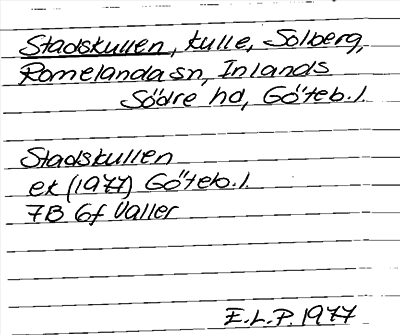 Stadskullen, kulle, Solberg,
Romelanda sn, Inlands
Södre hd, Göteb. l.
Stadskullen
ek (1977) Göteb. l.
7B 6f Valler
E.L.P. 1977